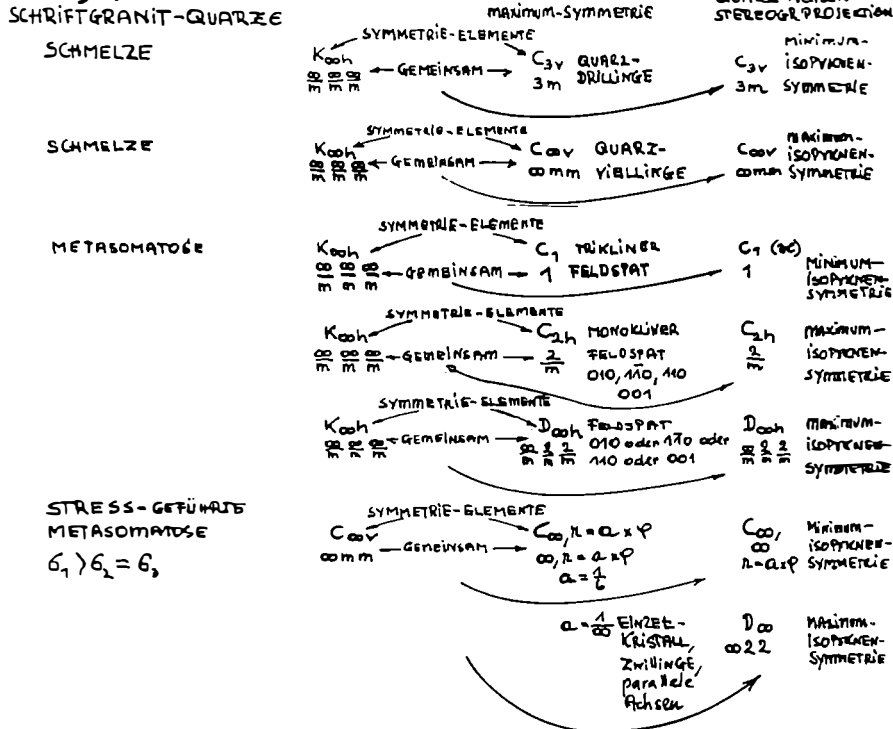 SCHRIFTGRANIT-QUARZE
MAXIMUM-SYMMETRIE
STEREOGR.PROJECTION
SCHMELZE
SYMMETRIE-ELEMENTE
K∞h
∞/m ∞/m ∞/m
GEMEINSAM
C3v QUARZ-
3m DRILLINGE
C3v
3m
MINIMUM-
ISOPYKNEN-
SYMMETRIE
SCHMELZE
SYMMETRIE-ELEMENTE
K∞h
∞/m ∞/m ∞/m
GEMEINSAM
C∞v QUARZ-
∞mm VIELLINGE
C∞v
∞mm
MAXIMUM-
ISOPYKNEN-
SYMMETRIE
METASOMATOSE
SYMMETRIE-ELEMENTE
K∞h
∞/m ∞/m ∞/m
GEMEINSAM
C1 TRIKLINER
1 FELDSPAT
C1
1
MINIMUM-
ISOPYKNEN-
SYMMETRIE
SYMMETRIE-ELEMENTE
K∞h
∞/m ∞/m ∞/m
GEMEINSAM
C2h MONOKLINER
2/m FELDSPAT
010, 11̄0, 110
001
C2h
2/m
MAXIMUM-
ISOPYKNEN-
SYMMETRIE
SYMMETRIE-ELEMENTE
K∞h
∞/m ∞/m ∞/m
GEMEINSAM
D∞h FELDSPAT
∞/m 2/m 2/m
010 oder 11̄0 oder
110 oder 001
D∞h
∞/m 2/m 2/m
MAXIMUM-
ISOPYKNEN-
SYMMETRIE
STRESS-GEFÜHRTE
METASOMATOSE
σ1 > σ2 = σ3
SYMMETRIE-ELEMENTE
C∞v
∞mm
GEMEINSAM
C∞, r = a × φ
∞, r = a × φ
a = 1/6
C∞,
∞
r = a×φ
MINIMUM-
ISOPYKNEN-
SYMMETRIE
a = 1/∞ EINZEL-
KRISTALL,
ZWILLINGE,
parallele
Achsen
D∞
∞22
MAXIMUM-
ISOPYKNEN-
SYMMETRIE